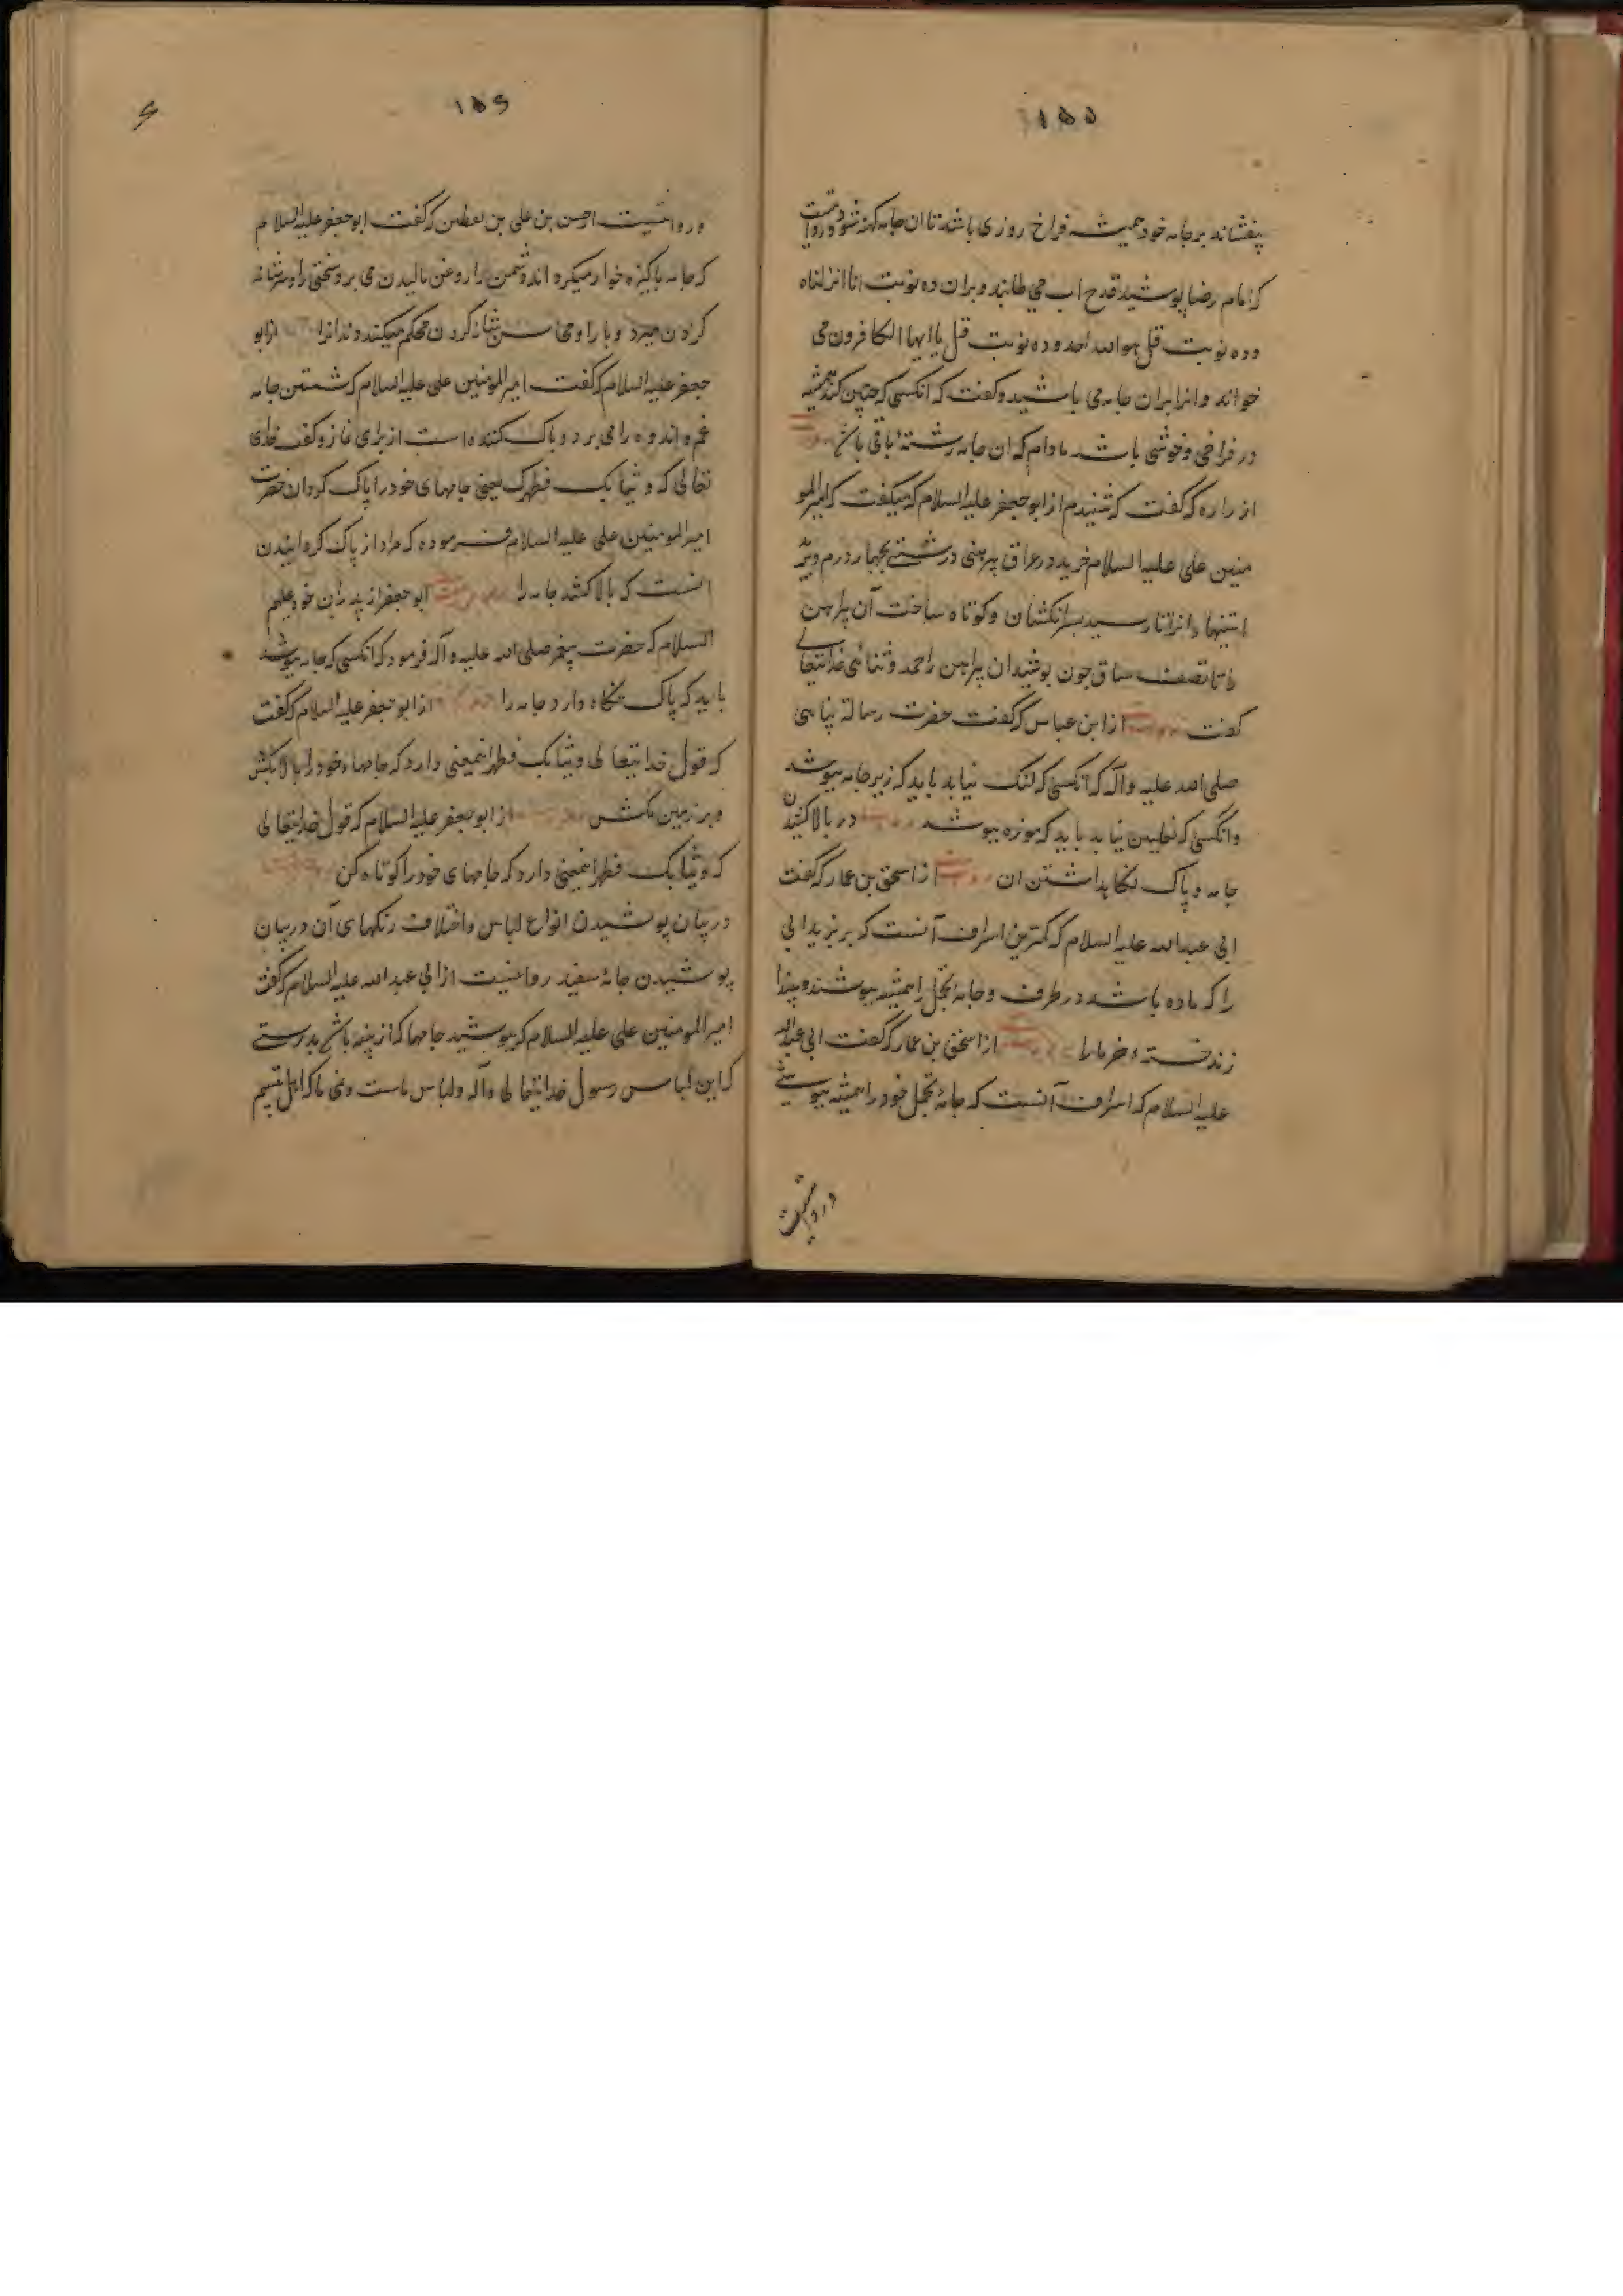 ۱۵۵
بیفشاند بر جامه خود همیشه فراخ روزی باشد تا ان جامه کهنه شود و روایتست
که امام رضا پوشید قدح اب می طلبید و بران ده نوبت انا انزلناه
و ده نوبت قل هو الله احد و ده نوبت قل یا ایها الکافرون می
خواند و انرا بران جامه می پاشید و گفت که انکسی که چنین کند همیشه
در فراخی و خوشی باشد مادام که ان جامه رشتهٔ باقی باشد
از زراره که گفت که شنیدم از ابو جعفر علیه السلام که میگفت که امیرالمو
منین علی علیه السلام خرید در عراق پیرهنی درشتی بچهار درم
استینها را تا رسید بسر انکشتان و کوتاه ساخت آن پیراهن
را تا نصف ساق چون پوشید ان پیراهن را حمد و ثنائی خدایتعالی
گفت از ابن عباس که گفت حضرت رسالة پناهی
صلی الله علیه و آله که انکسی که لنک نیابد باید که زیر جامه بپوشد
و انکسی که نعلین نیابد باید که موزه بپوشد در بالا کشیدن
جامه و پاک نکاهداشتن ان از اسحق بن عمار که گفت
ابی عبدالله علیه السلام که کمترین اسراف آنست که بریزید ابی
را که مانده باشد در ظرف و جامهٔ تجمل را همیشه بپوشند و بیندا
زند خستهٔ خرما را از اسحق بن عمار که گفت ابی عبدالله
علیه السلام که اسراف آنست که جامهٔ تجمل خود را همیشه بپوشی
و روایتست
۱۵۶
و روایتست از حسن بن علی بن یقطین که گفت ابو جعفر علیه السلام
که جامه پاکیزه خوار میکرداند دشمن را و روغن مالیدن می برد سختی را و سر شانه
کردن میبرد وبا را و محاسن شانه کردن محکم میکند دندانرا از ابو
جعفر علیه السلام که گفت امیرالمومنین علی علیه السلام که شستن جامه
غم و اندوه را می برد و پاک کننده است از برای نماز و گفت خدای
تعالی که و ثیابک فطهر یعنی جامهای خود را پاک کردان حضرت
امیرالمومنین علی علیه السلام فرموده که مراد از پاک کردانیدن
انست که بالا کشد جامه را ابو جعفر از پدران خود علیهم
السلام که حضرت پیغمبر صلی الله علیه و آله فرمود که انکسی که جامه بپوشد
باید که پاک نکاه دارد جامه را از ابو جعفر علیه السلام که گفت
که قول خدایتعالی و ثیابک فطهر اینمعنی دارد که جامهاء خود را بالا بکش
و بر زمین مکش از ابو جعفر علیه السلام که قول خدایتعالی
که و ثیابک فطهر اینمعنی دارد که جامهای خود را کوتاه کن
در بیان پوشیدن انواع لباس و اختلاف رنکهای آن در بیان
پوشیدن جامهٔ سفید روایتست از ابی عبدالله علیه السلام که گفت
امیرالمومنین علی علیه السلام که بپوشید جامها که از پنبه باشد بدرستی
که این لباس رسول خدایتعالی و آله و لباس ماست و نمی